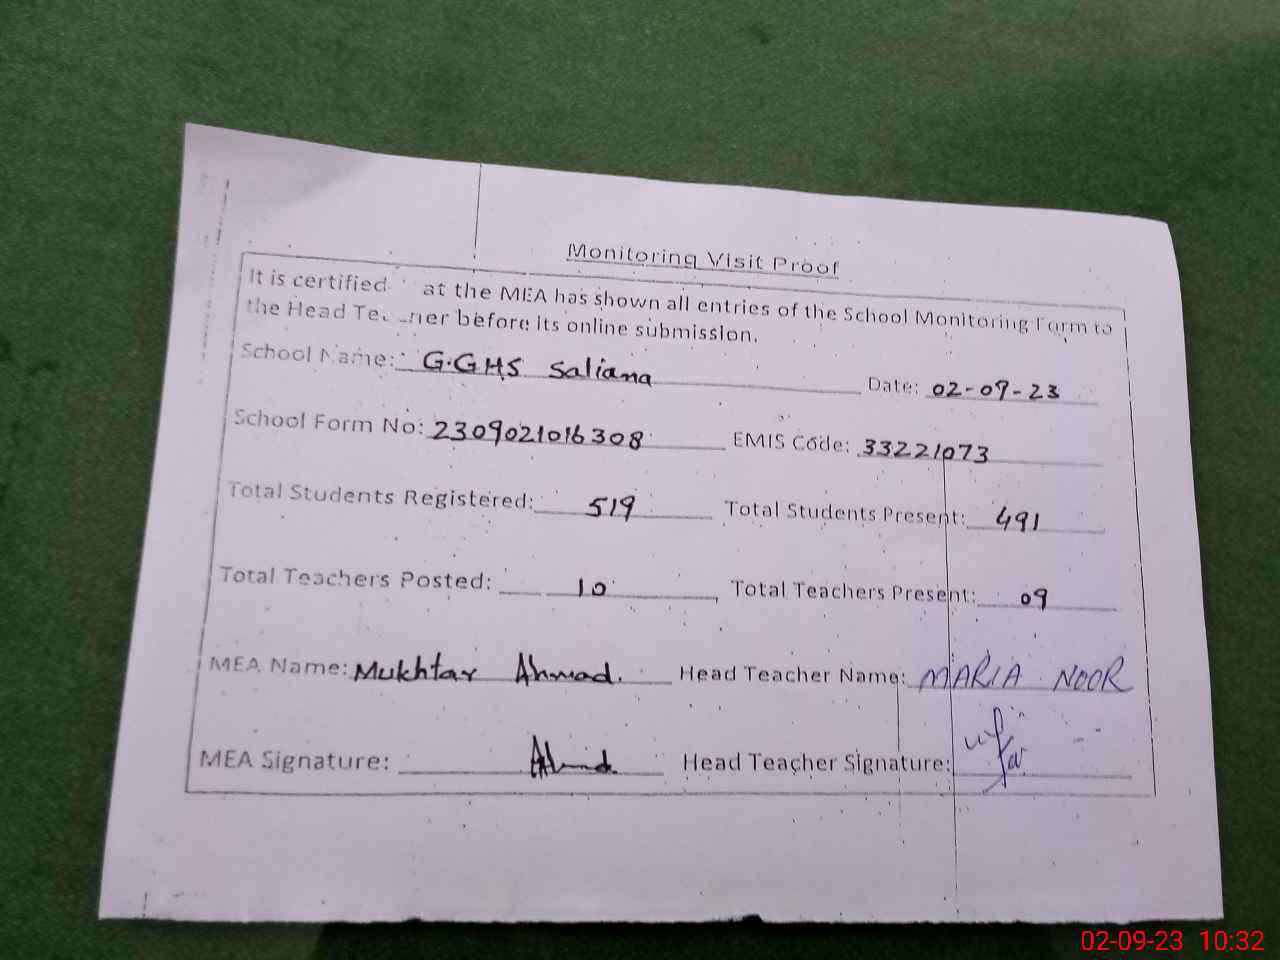 Monitoring Visit Proof
It is certified at the MEA has shown all entries of the School Monitoring Form to
the Head Teacher before its online submission.
School Name: G.GHS Saliana Date: 02-09-23
School Form No: 2309021016308 EMIS Code: 33221073
Total Students Registered: 519 Total Students Present: 491
Total Teachers Posted: 10 Total Teachers Present: 09
MEA Name: Mukhtar Ahmad. Head Teacher Name: MARIA NOOR
MEA Signature: Head Teacher Signature:
02-09-23 10:32